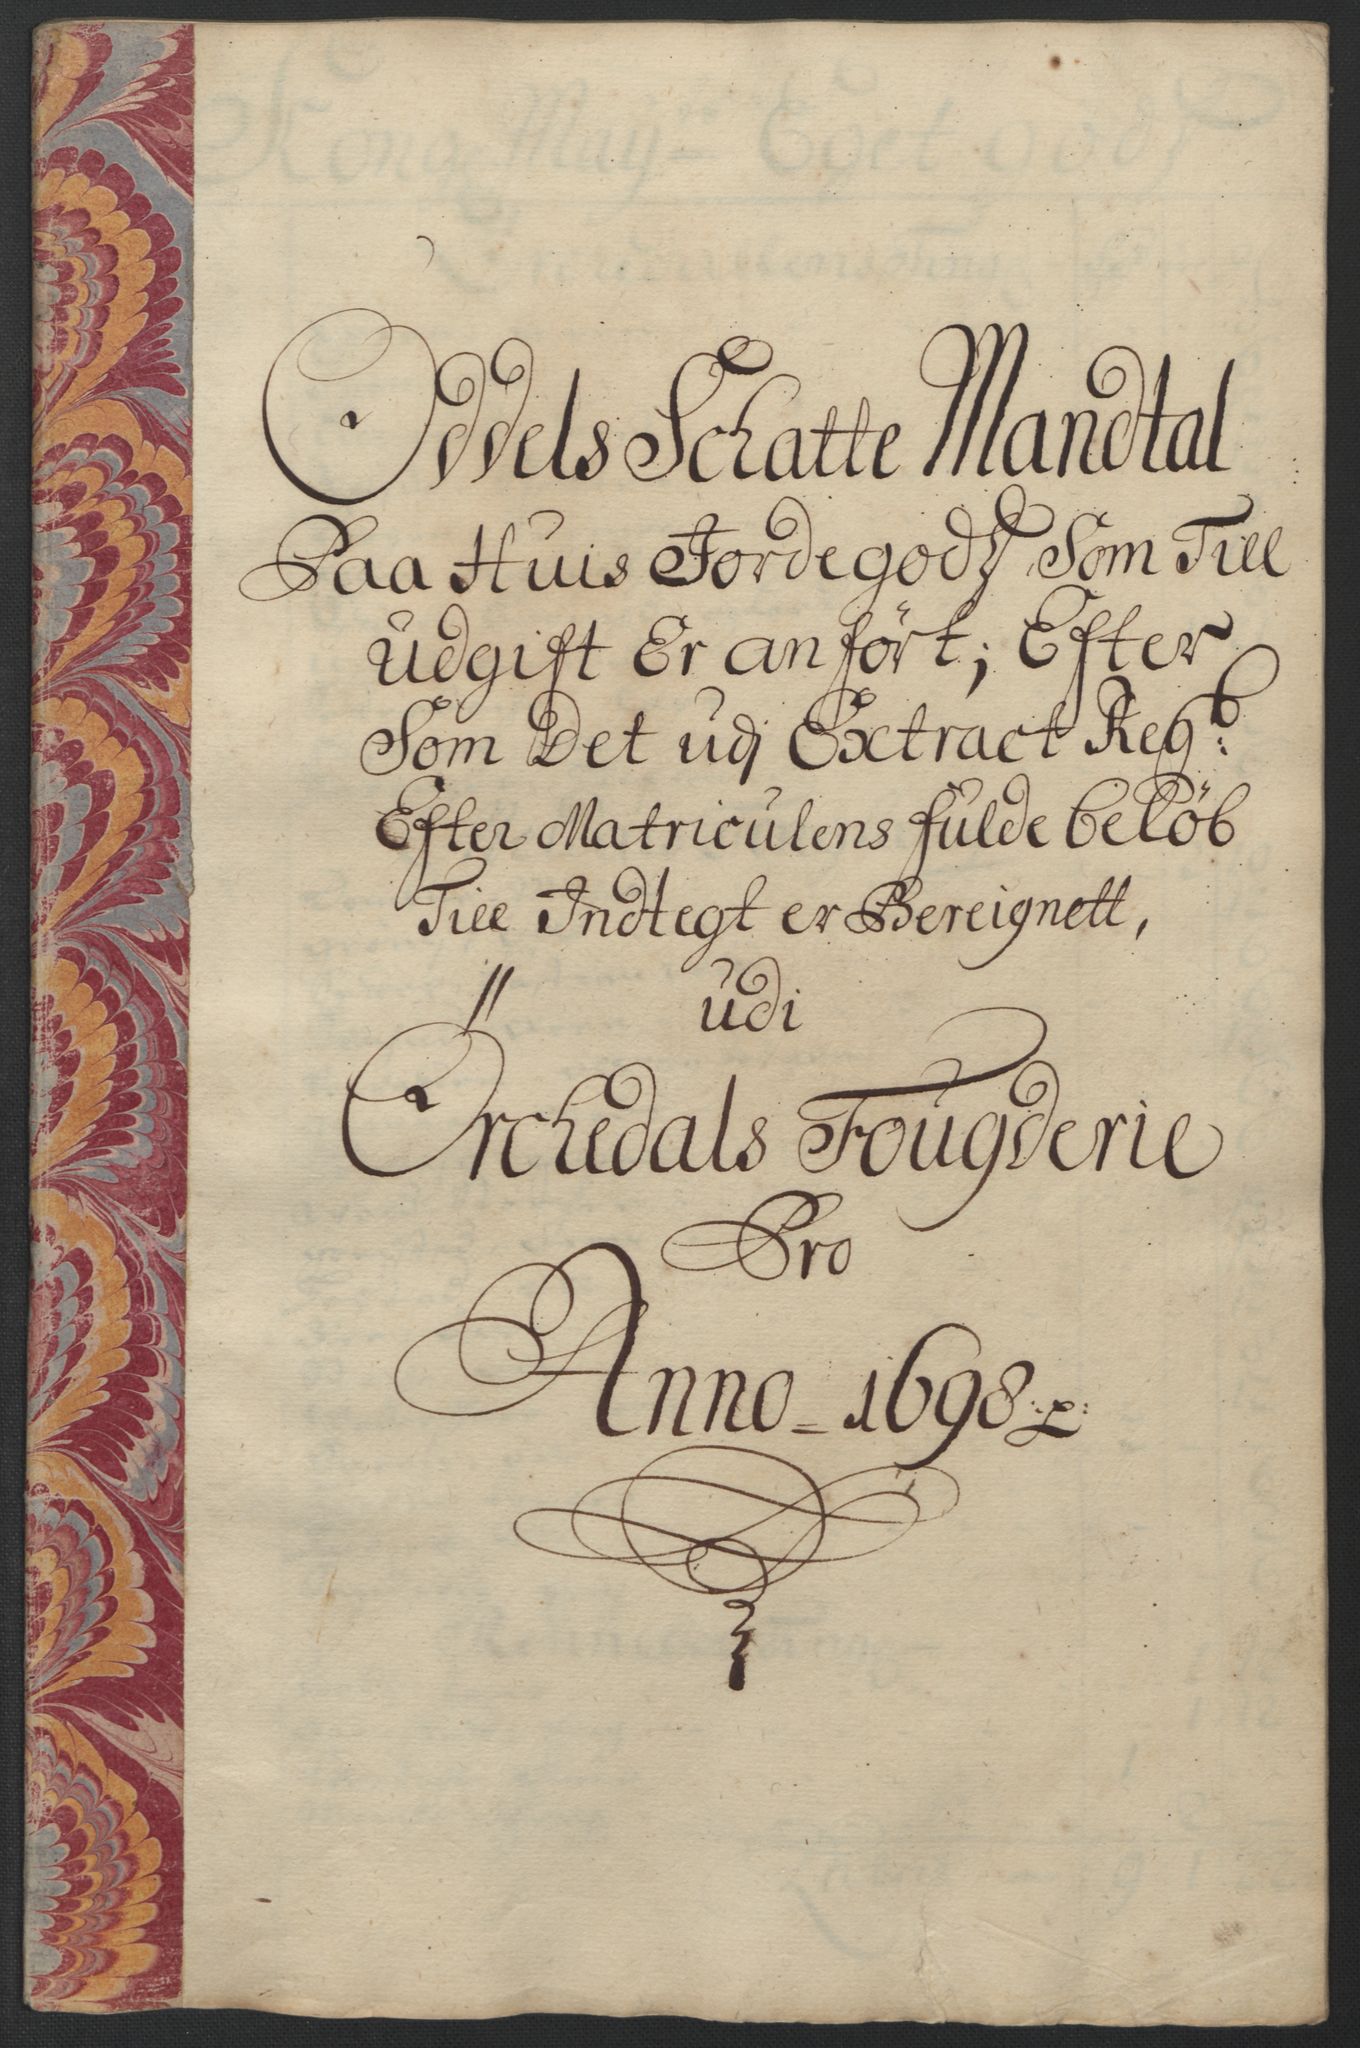 Oddels Schatte Mandtal
Paa Huis Jordegodz Som Till
udgift Er anført; Efter
Som Det udj Extract Regb:
Efter Matriculens fulde beløb
Till Indtegt er Bereignett,
udi
Örchedals Fougderie
Pro
Anno - 1698